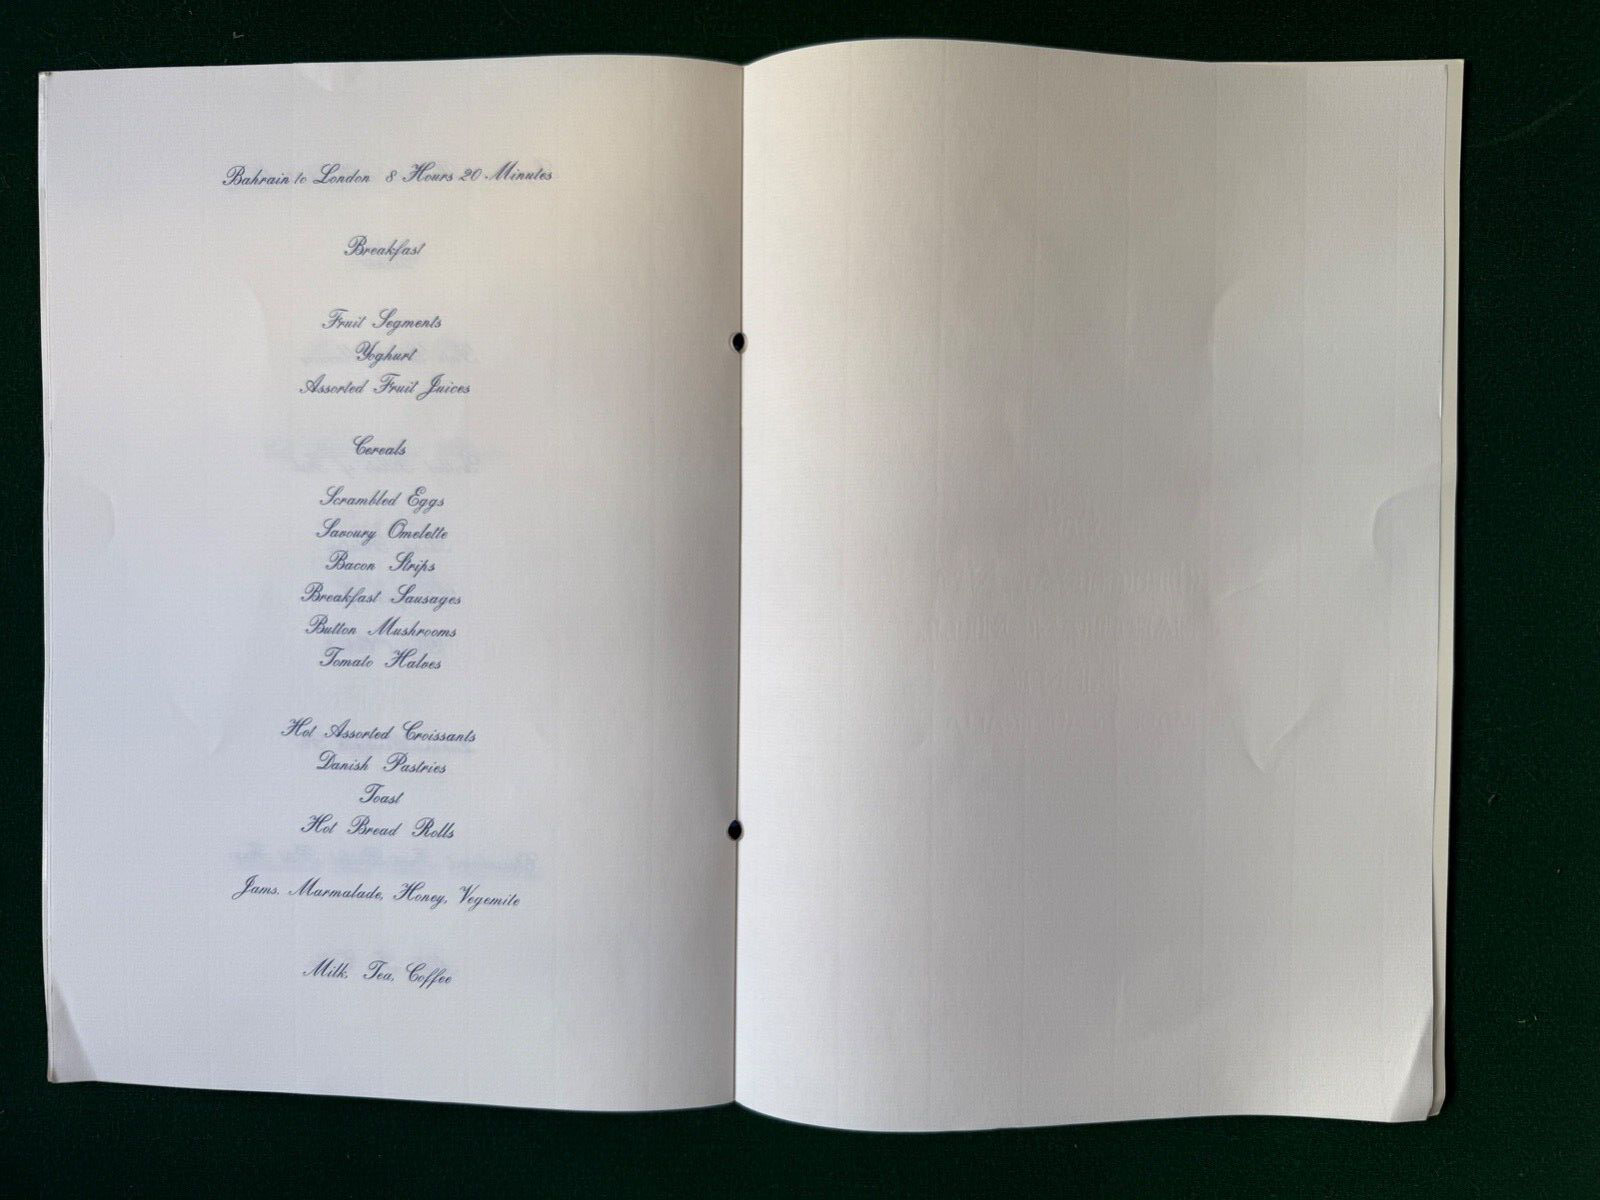 Bahrain to London 8 Hours 20 Minutes
Breakfast
Fruit Segments
Yoghurt
Assorted Fruit Juices
Cereals
Scrambled Eggs
Savoury Omelette
Bacon Strips
Breakfast Sausages
Button Mushrooms
Tomato Halves
Hot Assorted Croissants
Danish Pastries
Toast
Hot Bread Rolls
Jams, Marmalade, Honey, Vegemite
Milk, Tea, Coffee